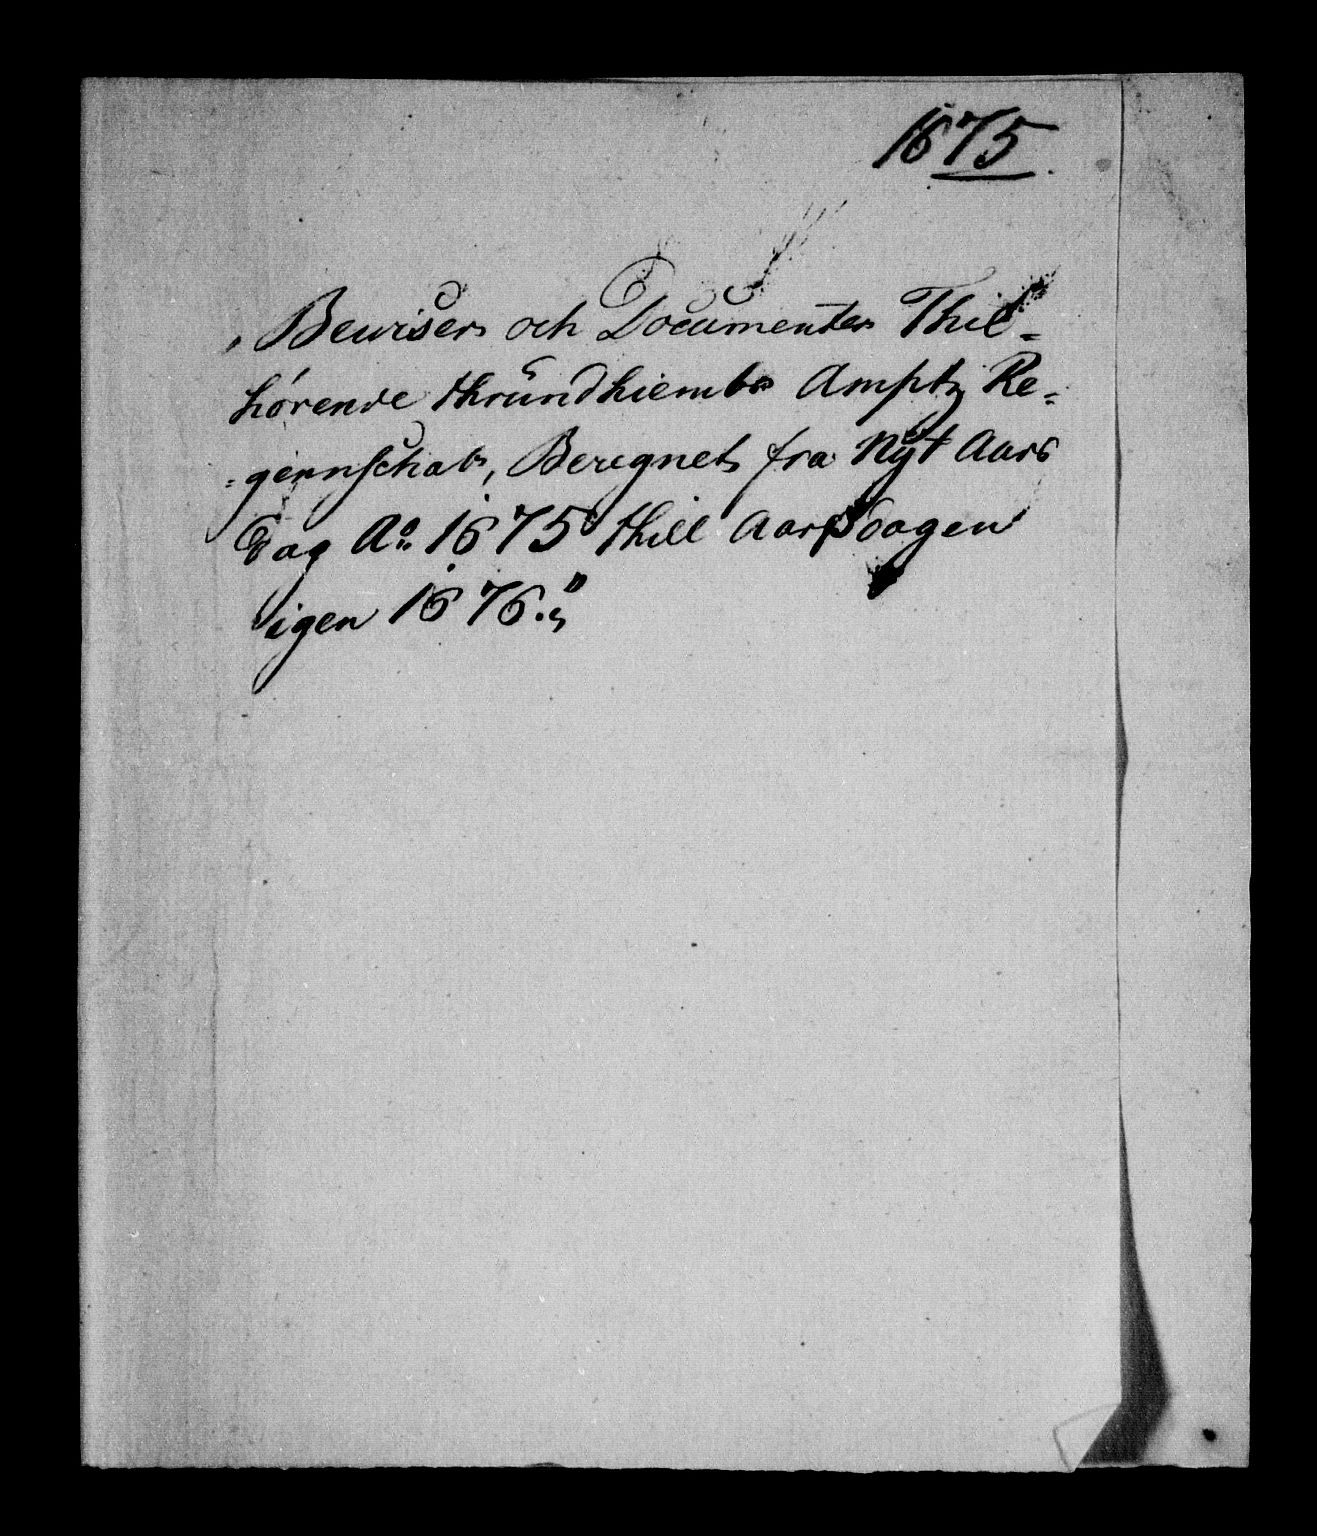 1675.
Bewiser och Documenter Thil=
hørende thrundhiembs Amptz Re=
=gennschab, Beregnet fra Nyt Aars
Dag Ao. 1675 thill Aarsdagen
igen 1676.